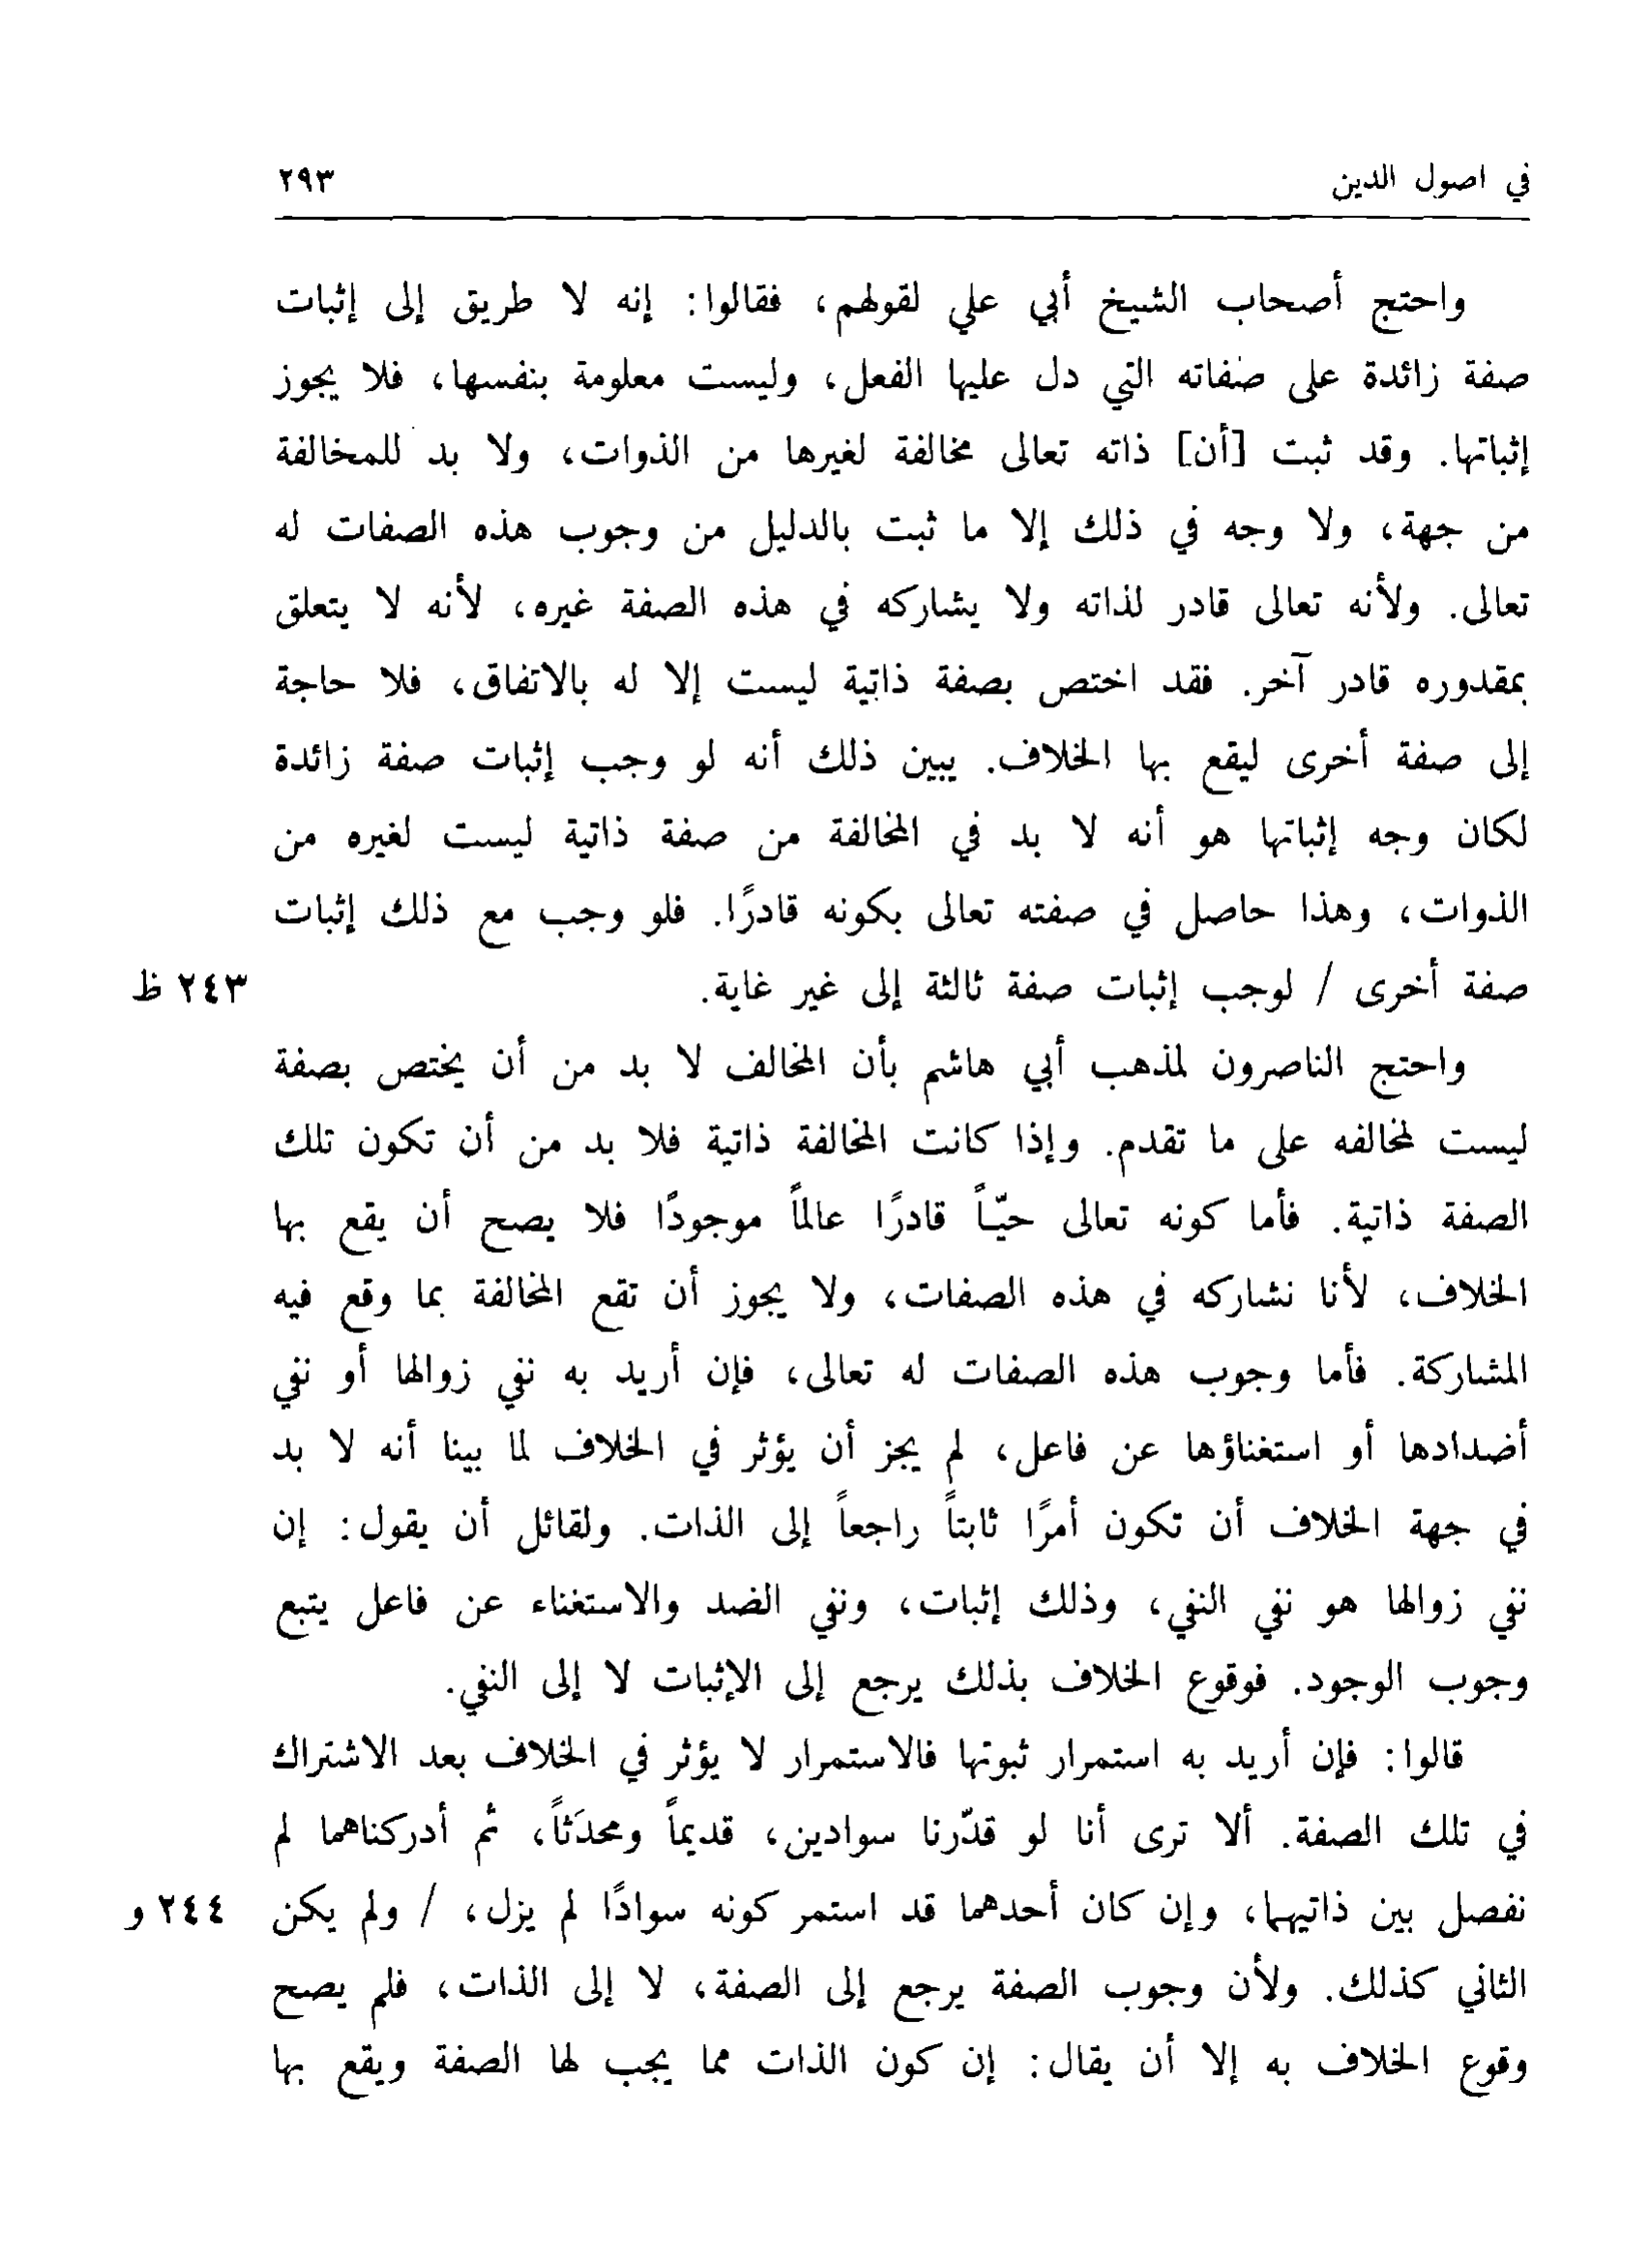 في اصول الدين ٢٩٣
واحتج أصحاب الشيخ أبي علي لقولهم، فقالوا: إنه لا طريق إلى إثبات
صفة زائدة على صفاته التي دل عليها الفعل، وليست معلومة بنفسها، فلا يجوز
إثباتها. وقد ثبت [أن] ذاته تعالى مخالفة لغيرها من الذوات، ولا بد للمخالفة
من جهة، ولا وجه في ذلك إلا ما ثبت بالدليل من وجوب هذه الصفات له
تعالى. ولأنه تعالى قادر لذاته ولا يشاركه في هذه الصفة غيره، لأنه لا يتعلق
بمقدوره قادر آخر. فقد اختص بصفة ذاتية ليست إلا له بالاتفاق، فلا حاجة
إلى صفة أخرى ليقع بها الخلاف. يبين ذلك أنه لو وجب إثبات صفة زائدة
لكان وجه إثباتها هو أنه لا بد في المخالفة من صفة ذاتية ليست لغيره من
الذوات، وهذا حاصل في صفته تعالى بكونه قادرًا. فلو وجب مع ذلك إثبات
صفة أخرى / لوجب إثبات صفة ثالثة إلى غير غاية. ٢٤٣ ظ
واحتج الناصرون لمذهب أبي هاشم بأن المخالف لا بد من أن يختص بصفة
ليست لمخالفه على ما تقدم. وإذا كانت المخالفة ذاتية فلا بد من أن تكون تلك
الصفة ذاتية. فأما كونه تعالى حيّاً قادرًا عالماً موجودًا فلا يصح أن يقع بها
الخلاف، لأنا نشاركه في هذه الصفات، ولا يجوز أن تقع المخالفة بما وقع فيه
المشاركة. فأما وجوب هذه الصفات له تعالى، فإن أريد به نفي زوالها أو نفي
أضدادها أو استغناؤها عن فاعل، لم يجز أن يؤثر في الخلاف لما بينا أنه لا بد
في جهة الخلاف أن تكون أمرًا ثابتاً راجعاً إلى الذات. ولقائل أن يقول: إن
نفي زوالها هو نفي النفي، وذلك إثبات، ونفي الضد والاستغناء عن فاعل يتبع
وجوب الوجود. فوقوع الخلاف بذلك يرجع إلى الإثبات لا إلى النفي.
قالوا: فإن أريد به استمرار ثبوتها فالاستمرار لا يؤثر في الخلاف بعد الاشتراك
في تلك الصفة. ألا ترى أنا لو قدّرنا سوادين، قديماً ومحدَثاً، ثم أدركناهما لم
نفصل بين ذاتيهما، وإن كان أحدهما قد استمر كونه سوادًا لم يزل، / ولم يكن ٢٤٤ و
الثاني كذلك. ولأن وجوب الصفة يرجع إلى الصفة، لا إلى الذات، فلم يصح
وقوع الخلاف به إلا أن يقال: إن كون الذات مما يجب لها الصفة ويقع بها